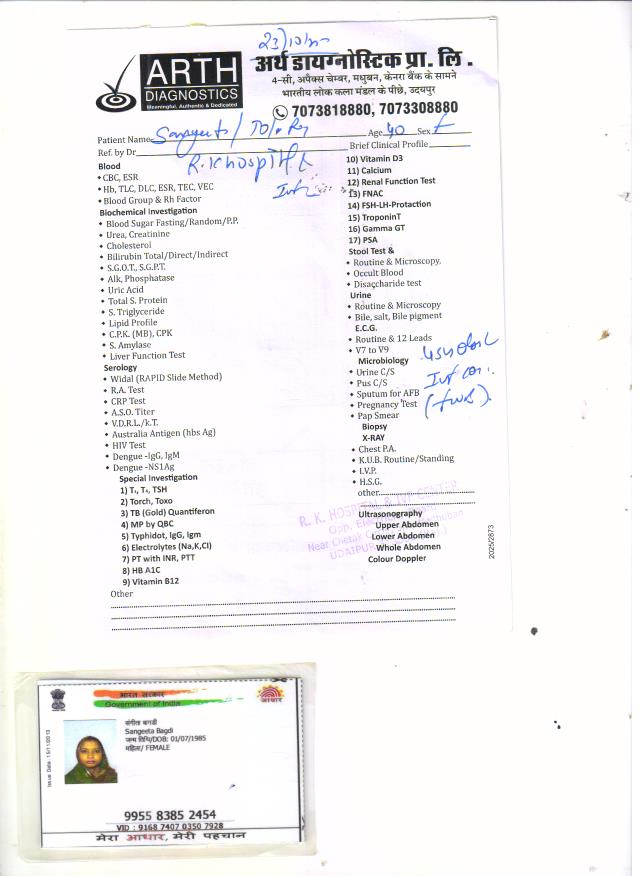 ARTH
DIAGNOSTICS
Meaningful, Authentic & Dedicated
अर्थ डायग्नोस्टिक प्रा. लि.
4-सी, अपैक्स चेम्बर, मधुबन, केनरा बैंक के सामने
भारतीय लोक कला मंडल के पीछे, उदयपुर
7073818880, 7073308880
Patient Name Age 40 Sex F
Ref. by Dr. R.K hospital Brief Clinical Profile
Blood
• CBC, ESR
• Hb, TLC, DLC, ESR, TEC, VEC
• Blood Group & Rh Factor
Biochemical Investigation
• Blood Sugar Fasting/Random/P.P.
• Urea, Creatinine
• Cholesterol
• Bilirubin Total/Direct/Indirect
• S.G.O.T., S.G.P.T.
• Alk, Phosphatase
• Uric Acid
• Total S. Protein
• S. Triglyceride
• Lipid Profile
• C.P.K. (MB), CPK
• S. Amylase
• Liver Function Test
Serology
• Widal (RAPID Slide Method)
• R.A. Test
• CRP Test
• A.S.O. Titer
• V.D.R.L./k.T.
• Australia Antigen (hbs Ag)
• HIV Test
• Dengue -IgG, IgM
• Dengue -NS1Ag
Special Investigation
1) T₃, T₄, TSH
2) Torch, Toxo
3) TB (Gold) Quantiferon
4) MP by QBC
5) Typhidot, IgG, Igm
6) Electrolytes (Na,K,Cl)
7) PT with INR, PTT
8) HB A1C
9) Vitamin B12
Other
10) Vitamin D3
11) Calcium
12) Renal Function Test
13) FNAC
14) FSH-LH-Protaction
15) TroponinT
16) Gamma GT
17) PSA
Stool Test &
• Routine & Microscopy.
• Occult Blood
• Disaccharide test
Urine
• Routine & Microscopy
• Bile, salt, Bile pigment
E.C.G.
• Routine & 12 Leads
• V7 to V9
Microbiology
• Urine C/S
• Pus C/S
• Sputum for AFB
• Pregnancy Test
• Pap Smear
Biopsy
X-RAY
• Chest P.A.
• K.U.B. Routine/Standing
• I.V.P.
• H.S.G.
other
Ultrasonography
Upper Abdomen
Lower Abdomen
Whole Abdomen
Colour Doppler
R. K. HOSPITAL & IVF CENTER
2025/2873
भारत सरकार
Government of India
आधार
Issue Date: 15/11/2013
संगीता बागडी
Sangeeta Bagdi
जन्म तिथि/DOB: 01/07/1985
महिला/ FEMALE
9955 8385 2454
VID : 9168 7407 0350 7928
मेरा आधार, मेरी पहचान